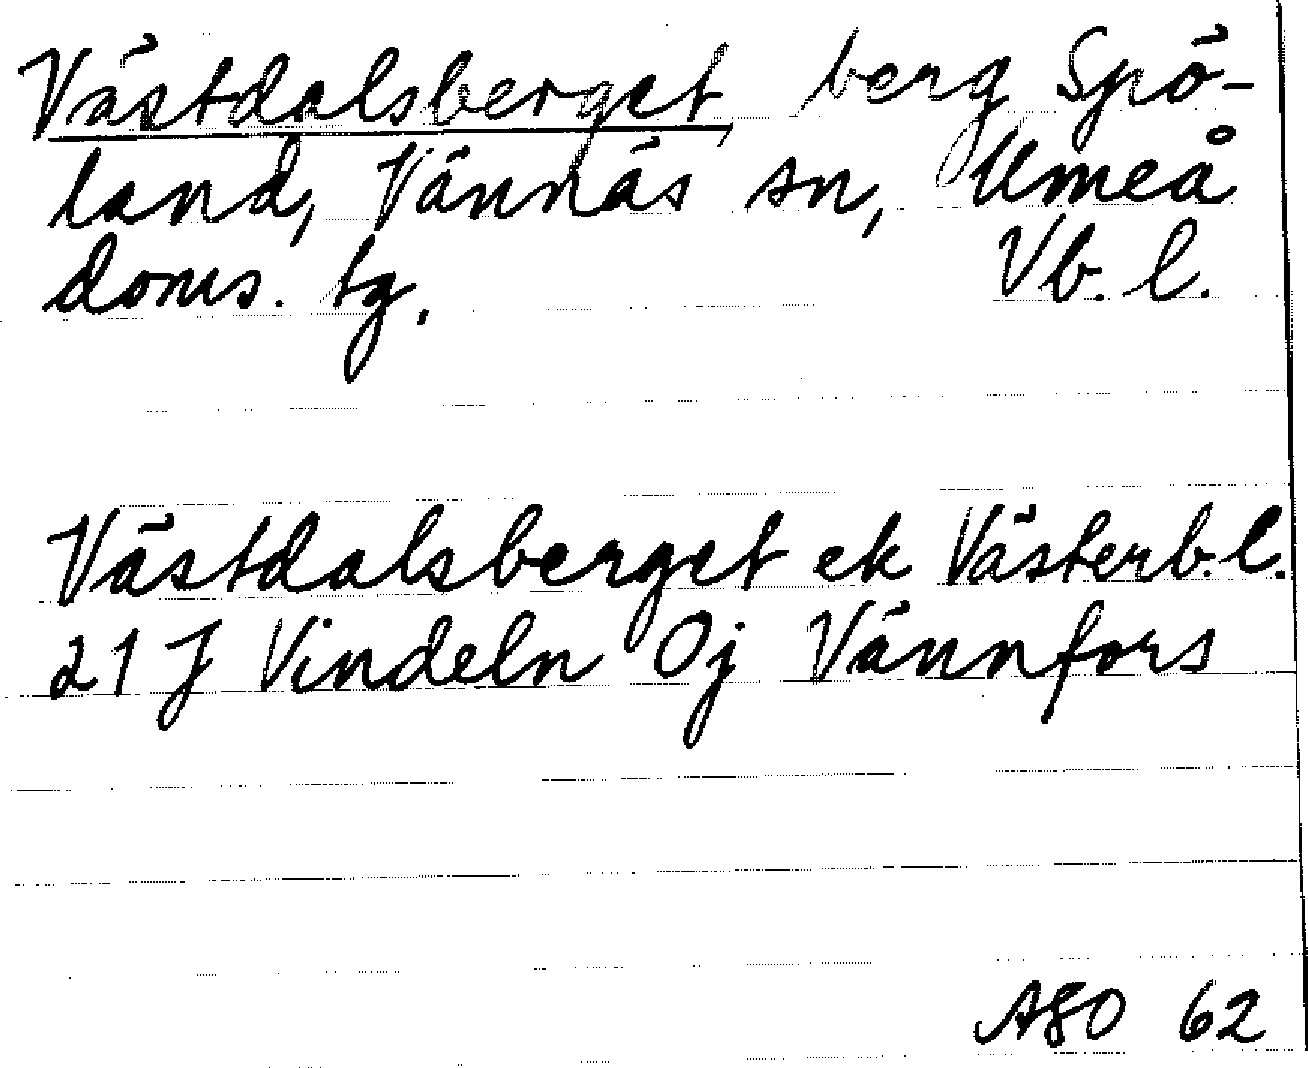 Västdalsberget, berg Spö-
land, Vännäs sn, Umeå
doms. tg. Vb. l.
Västdalsberget ek Västerb. l.
21 J Vindeln 0j Vännfors
ASO 62